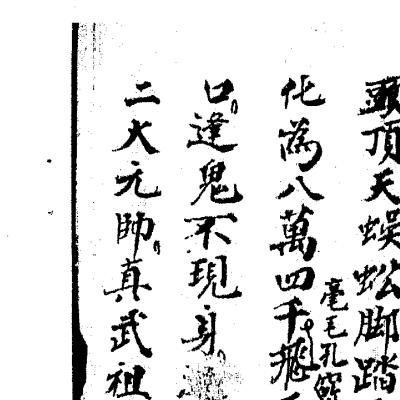 頭頂天蜈蚣脚踏
化為八萬四千飛
毫毛孔竅
口逢鬼不現身
二大元帥真武祖